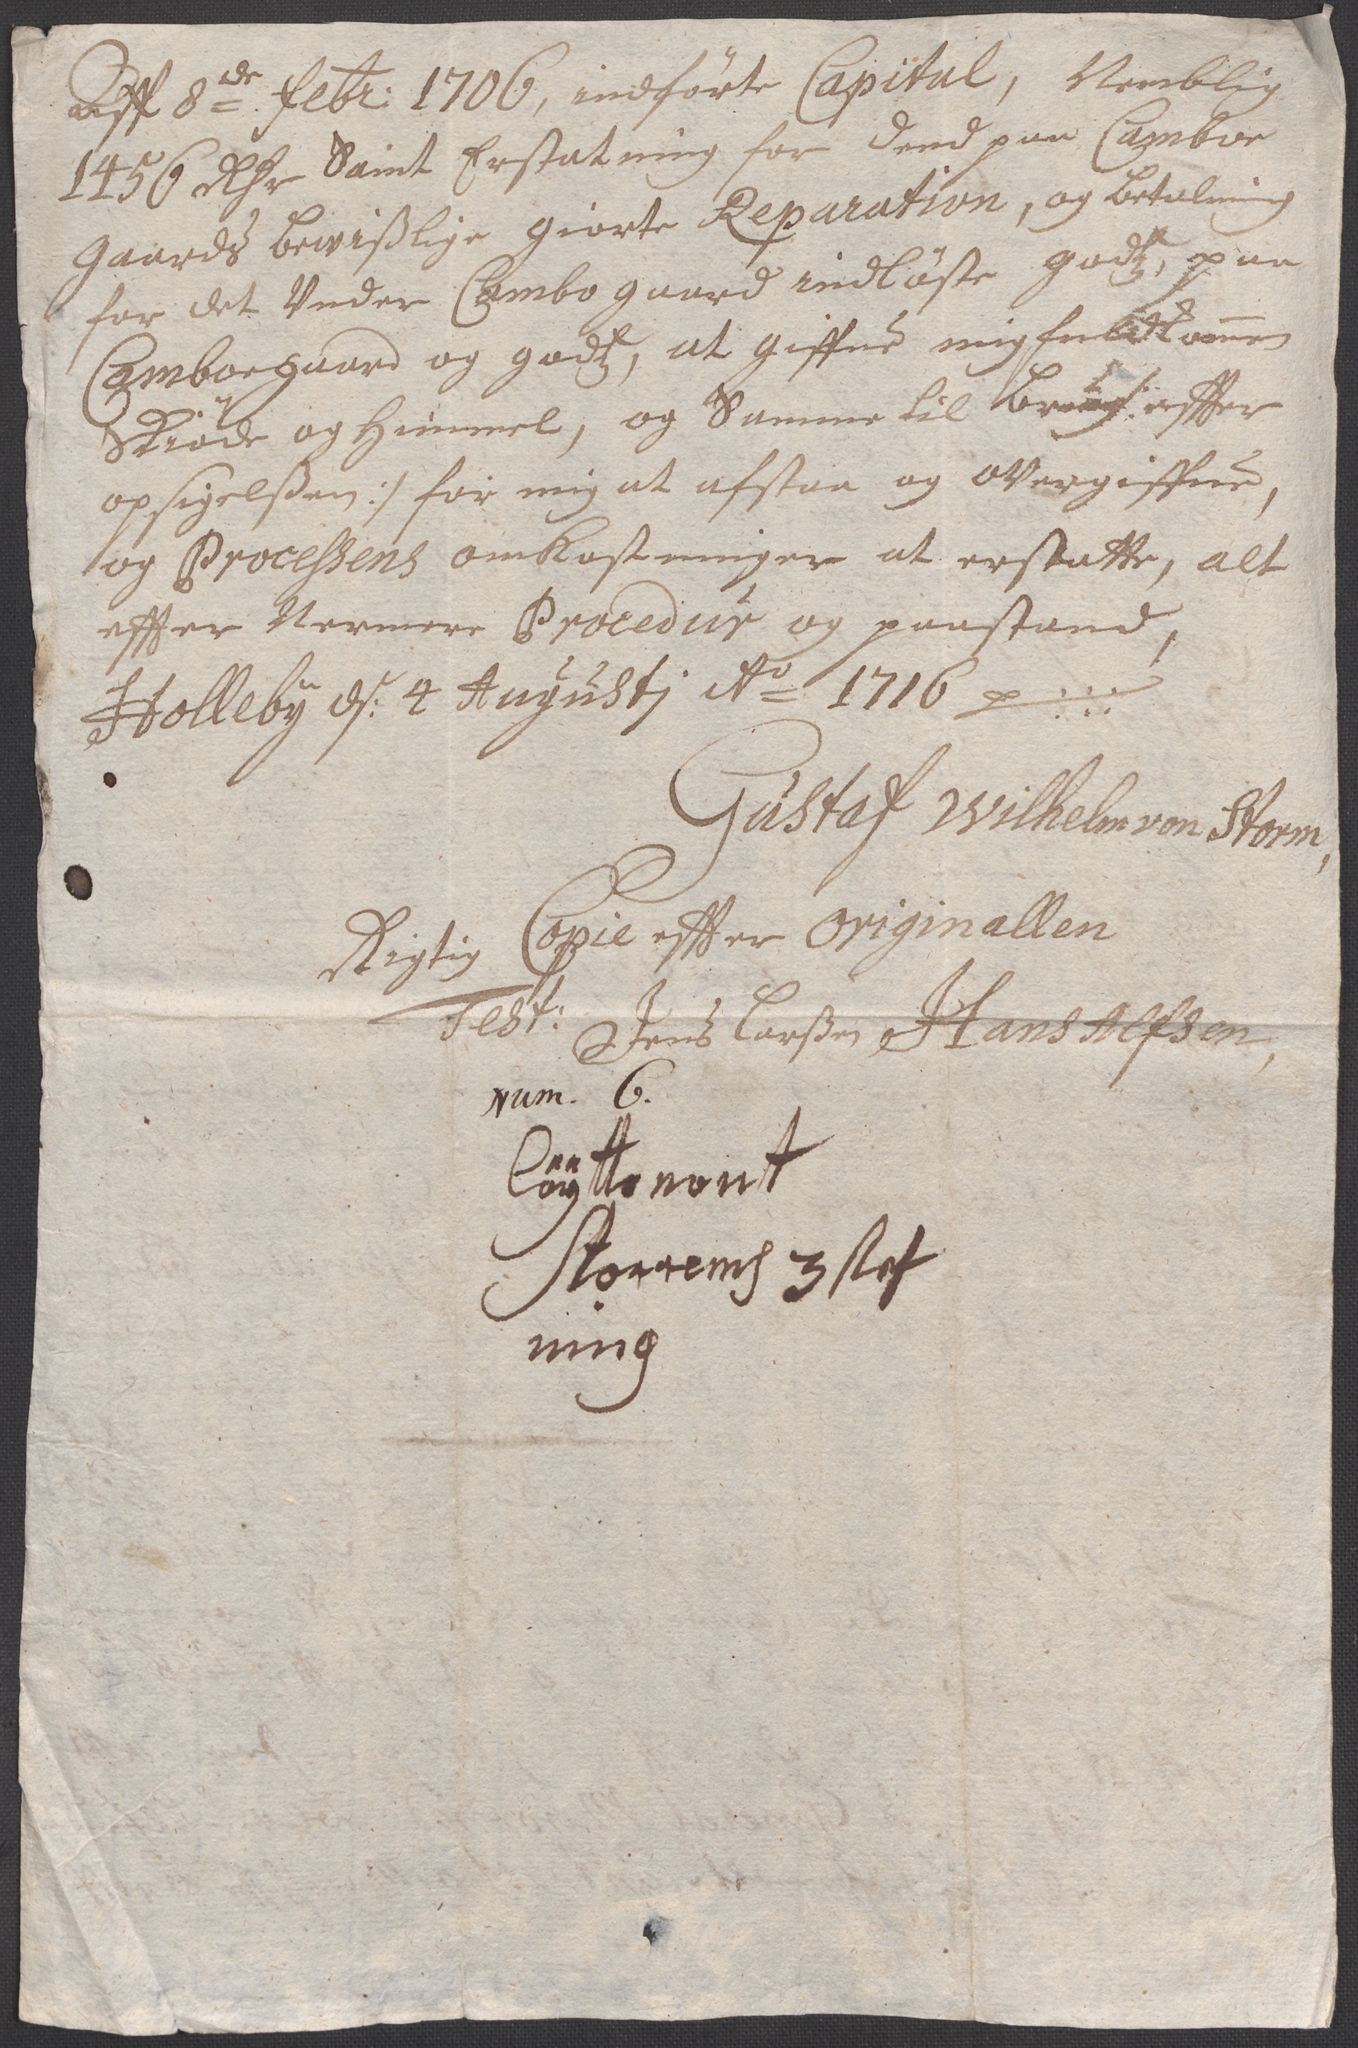 Aff 8de febr: 1706, indførte Capital, Nemblig
1456 Rdr Samt Erstatning for dend paa Camboe
gaards bewißlige giorte Reparation, og betalning
for det Under Cambogaard indløste godtz, paa
Camboegaard og godtz, at giffue mig fuldkommen
Skiøde og Himmel, og Samme til brug /: effter
opsigelßen :/ for mig at afstaa og overgiffue,
og Processens omkostninger at erstatte, alt
effter Nermere Procedur og paastand,
Holleby ds: 4 Augustj Ao 1716
Gustaf Wilhelm von Storm,
Rigtig Copie effter originallen
Test: Jens Larßen Hans Alfsen,
Num. 6.
Løyttenant
Storrems 3 stef
ning